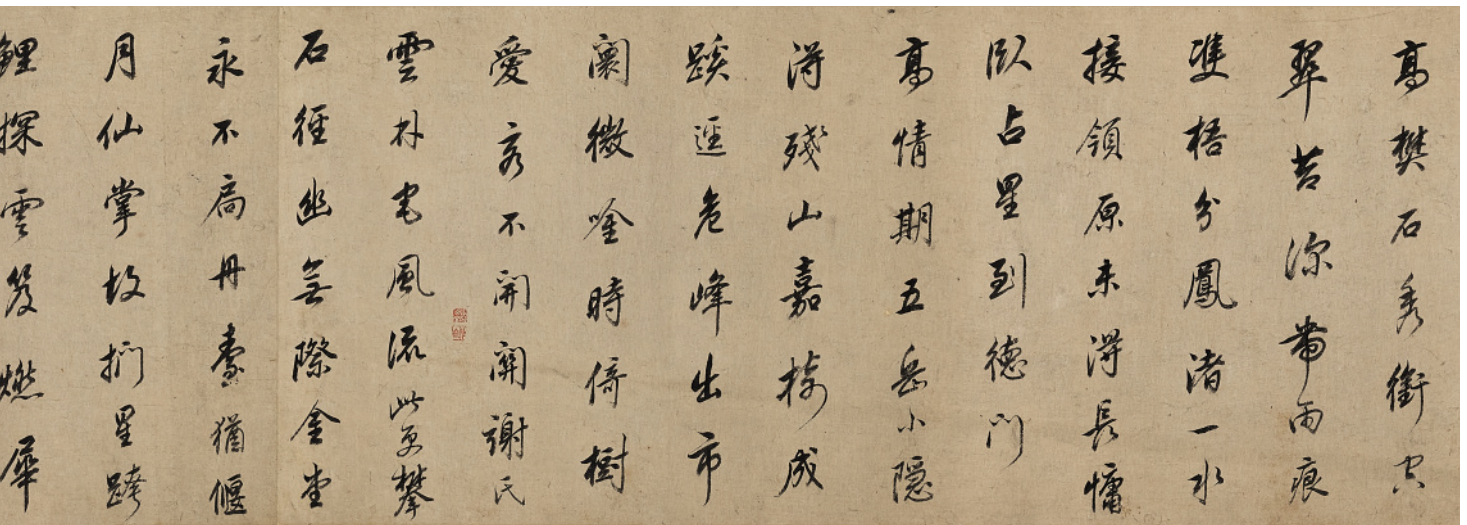 高樊石秀銜空
翠苔深帶雨痕
雙梧分鳳渚一水
接領原未得長慵
臥占星到德門
高情期五岳小隱
得殘山嘉樹成
蹊逕危峰出市
闤微吟時倚樹
愛客不開關謝氏
雲林宅風流此更攀
石徑幽無際金堂
永不扃丹臺猶偃
月仙掌故捫星跨
鯉探雲笈燃犀